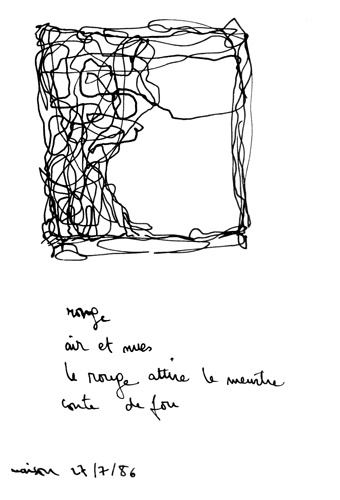 rouge
air et nues
le rouge attire le meurtre
conte de fou
maison 27/7/86